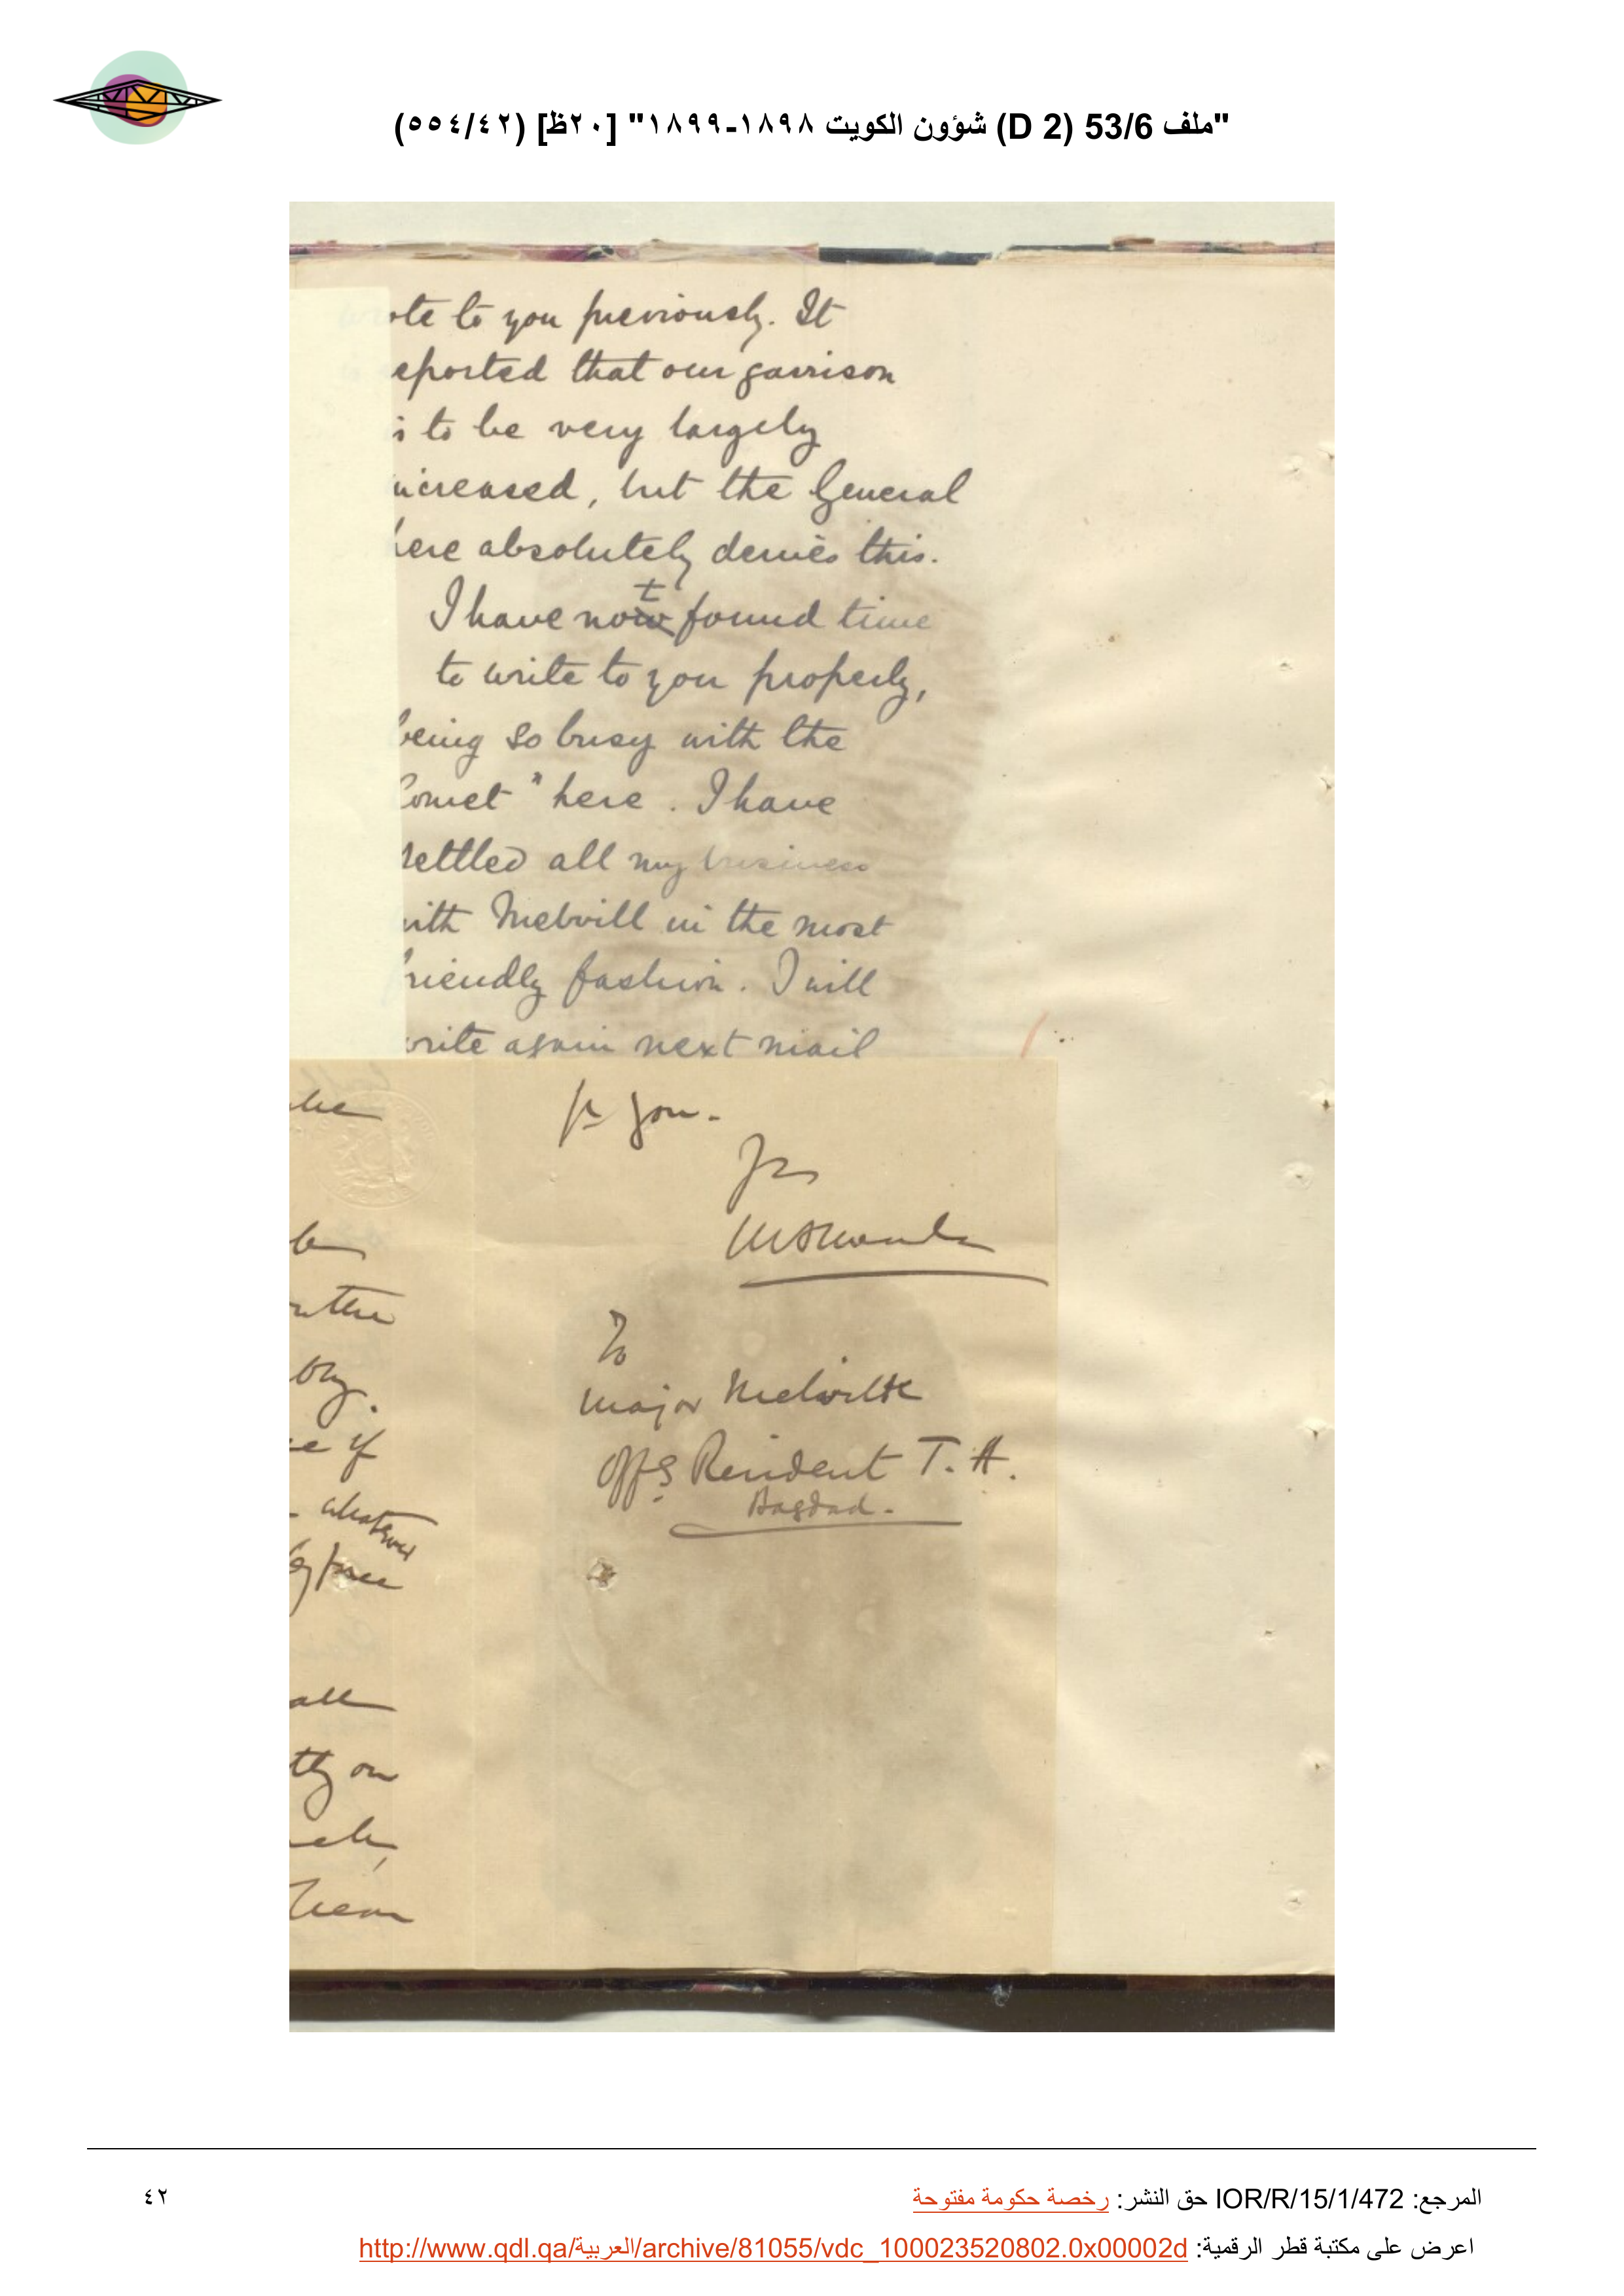 "ملف 53/6 (D 2) شؤون الكويت ١٨٩٨-١٨٩٩" [٢٠ظ] (٥٥٤/٤٢)
ote to you previously. It
eported that our garrison
is to be very largely
increased, but the General
here absolutely denies this.
I have not found time
to write to you properly,
being so busy with the
Comet" here. I have
settled all my business
with Melvill in the most
friendly fashion. I will
write again next mail
to you.
To
Major Melvill
Offg Resident T. A.
Bagdad.
the
be
the
if
whatever
all
on
المرجع: IOR/R/15/1/472 حق النشر: رخصة حكومة مفتوحة
٤٢
اعرض على مكتبة قطر الرقمية: http://www.qdl.qa/العربية/archive/81055/vdc_100023520802.0x00002d